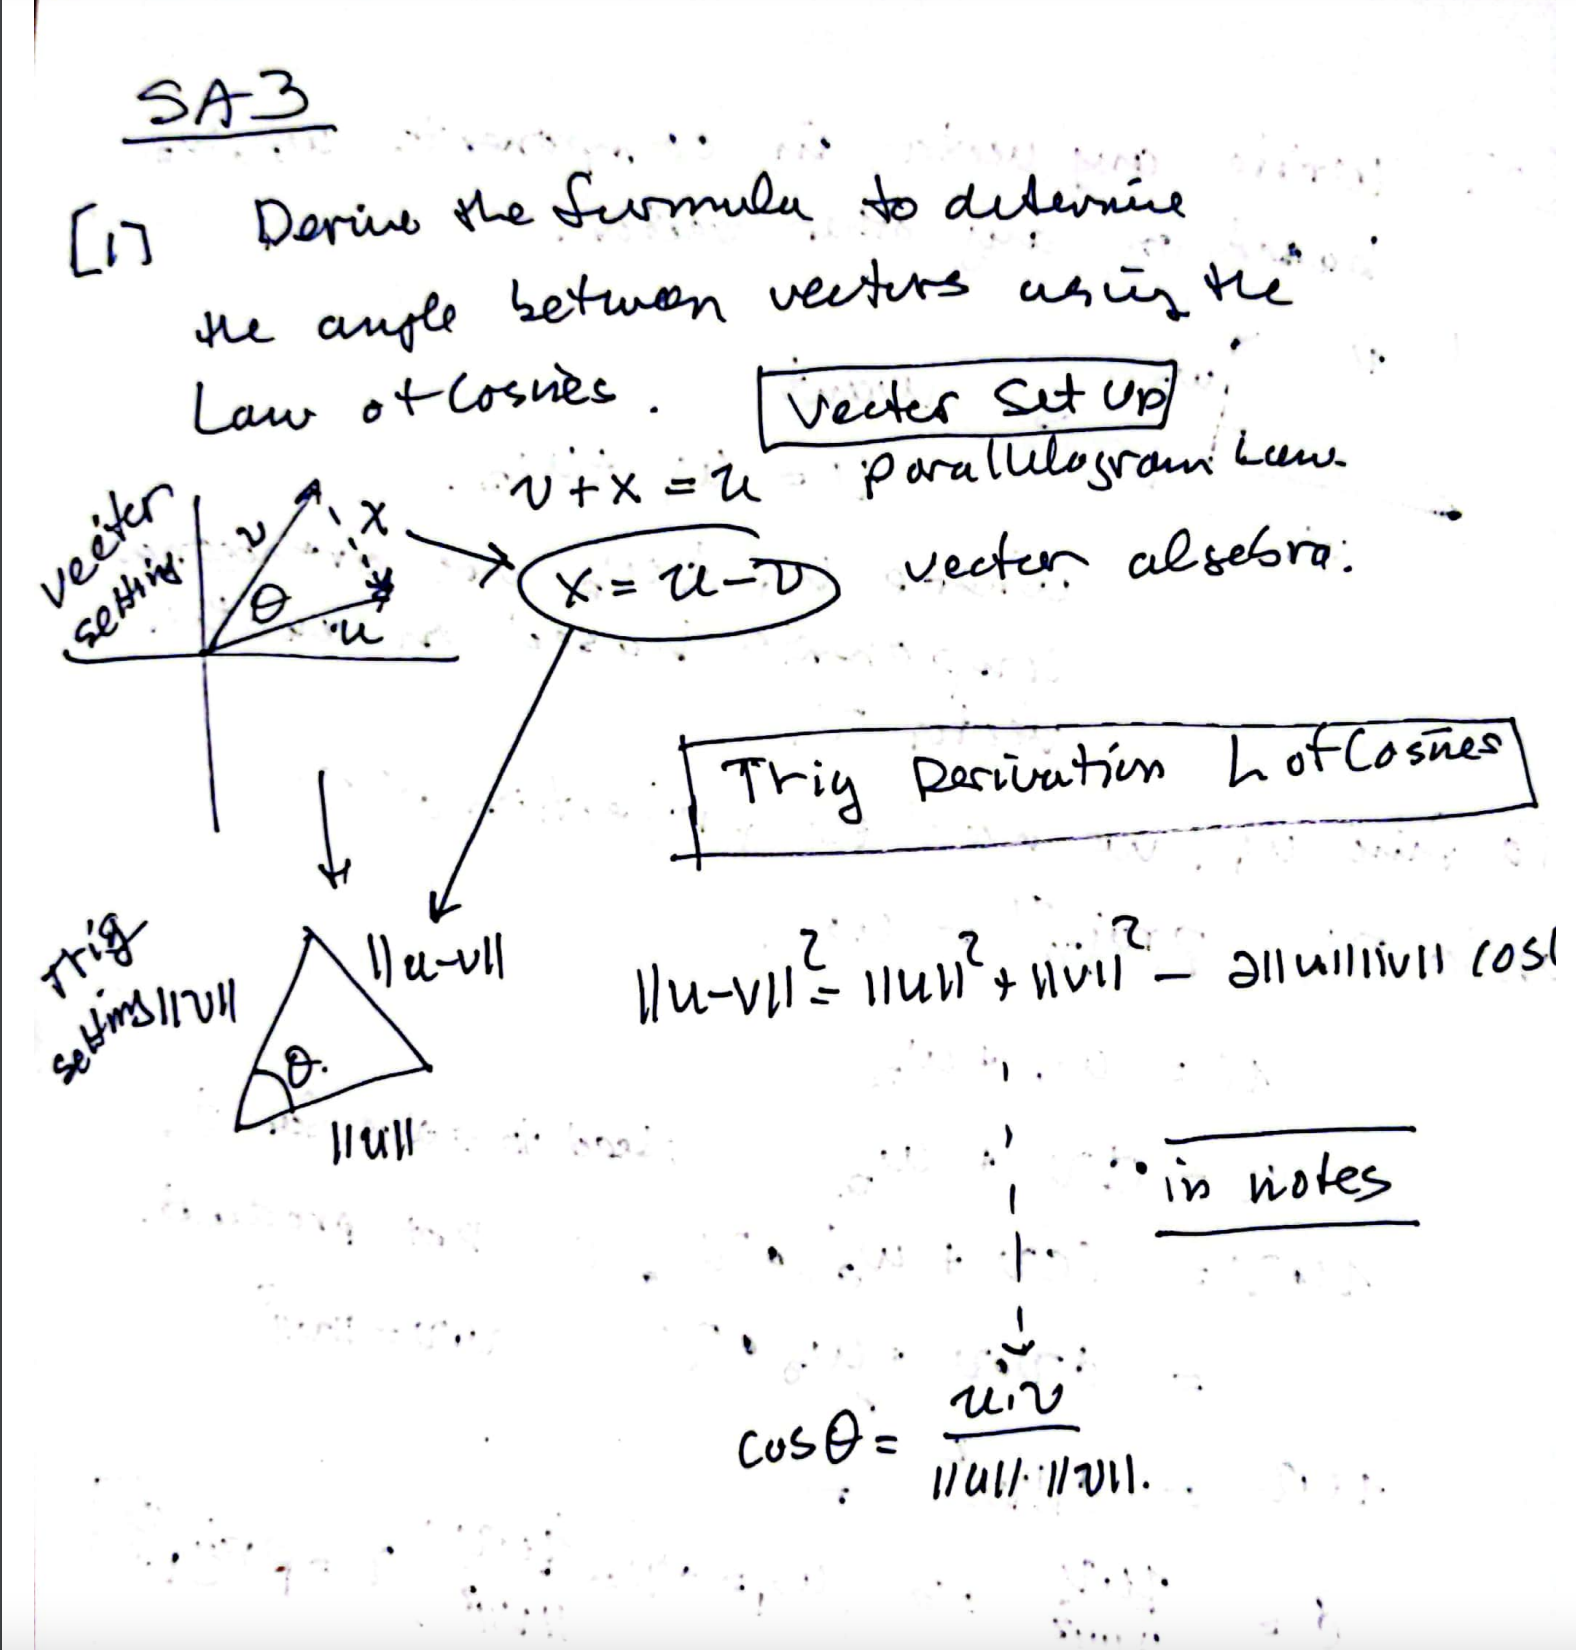 SA-3
[1] Derive the formula to determine
the angle between vectors using the
Law of Cosines.
Vector Set Up
v + x = u parallelogram Law
vector setting
v
x
θ
u
x = u - v vector algebra.
Trig Derivation L of Cosines
Trig setting
||v||
||u-v||
θ.
||u||
||u-v||² = ||u||² + ||v||² - 2||u||||v|| cos
in notes
cosθ = u·v / ||u||·||v||.